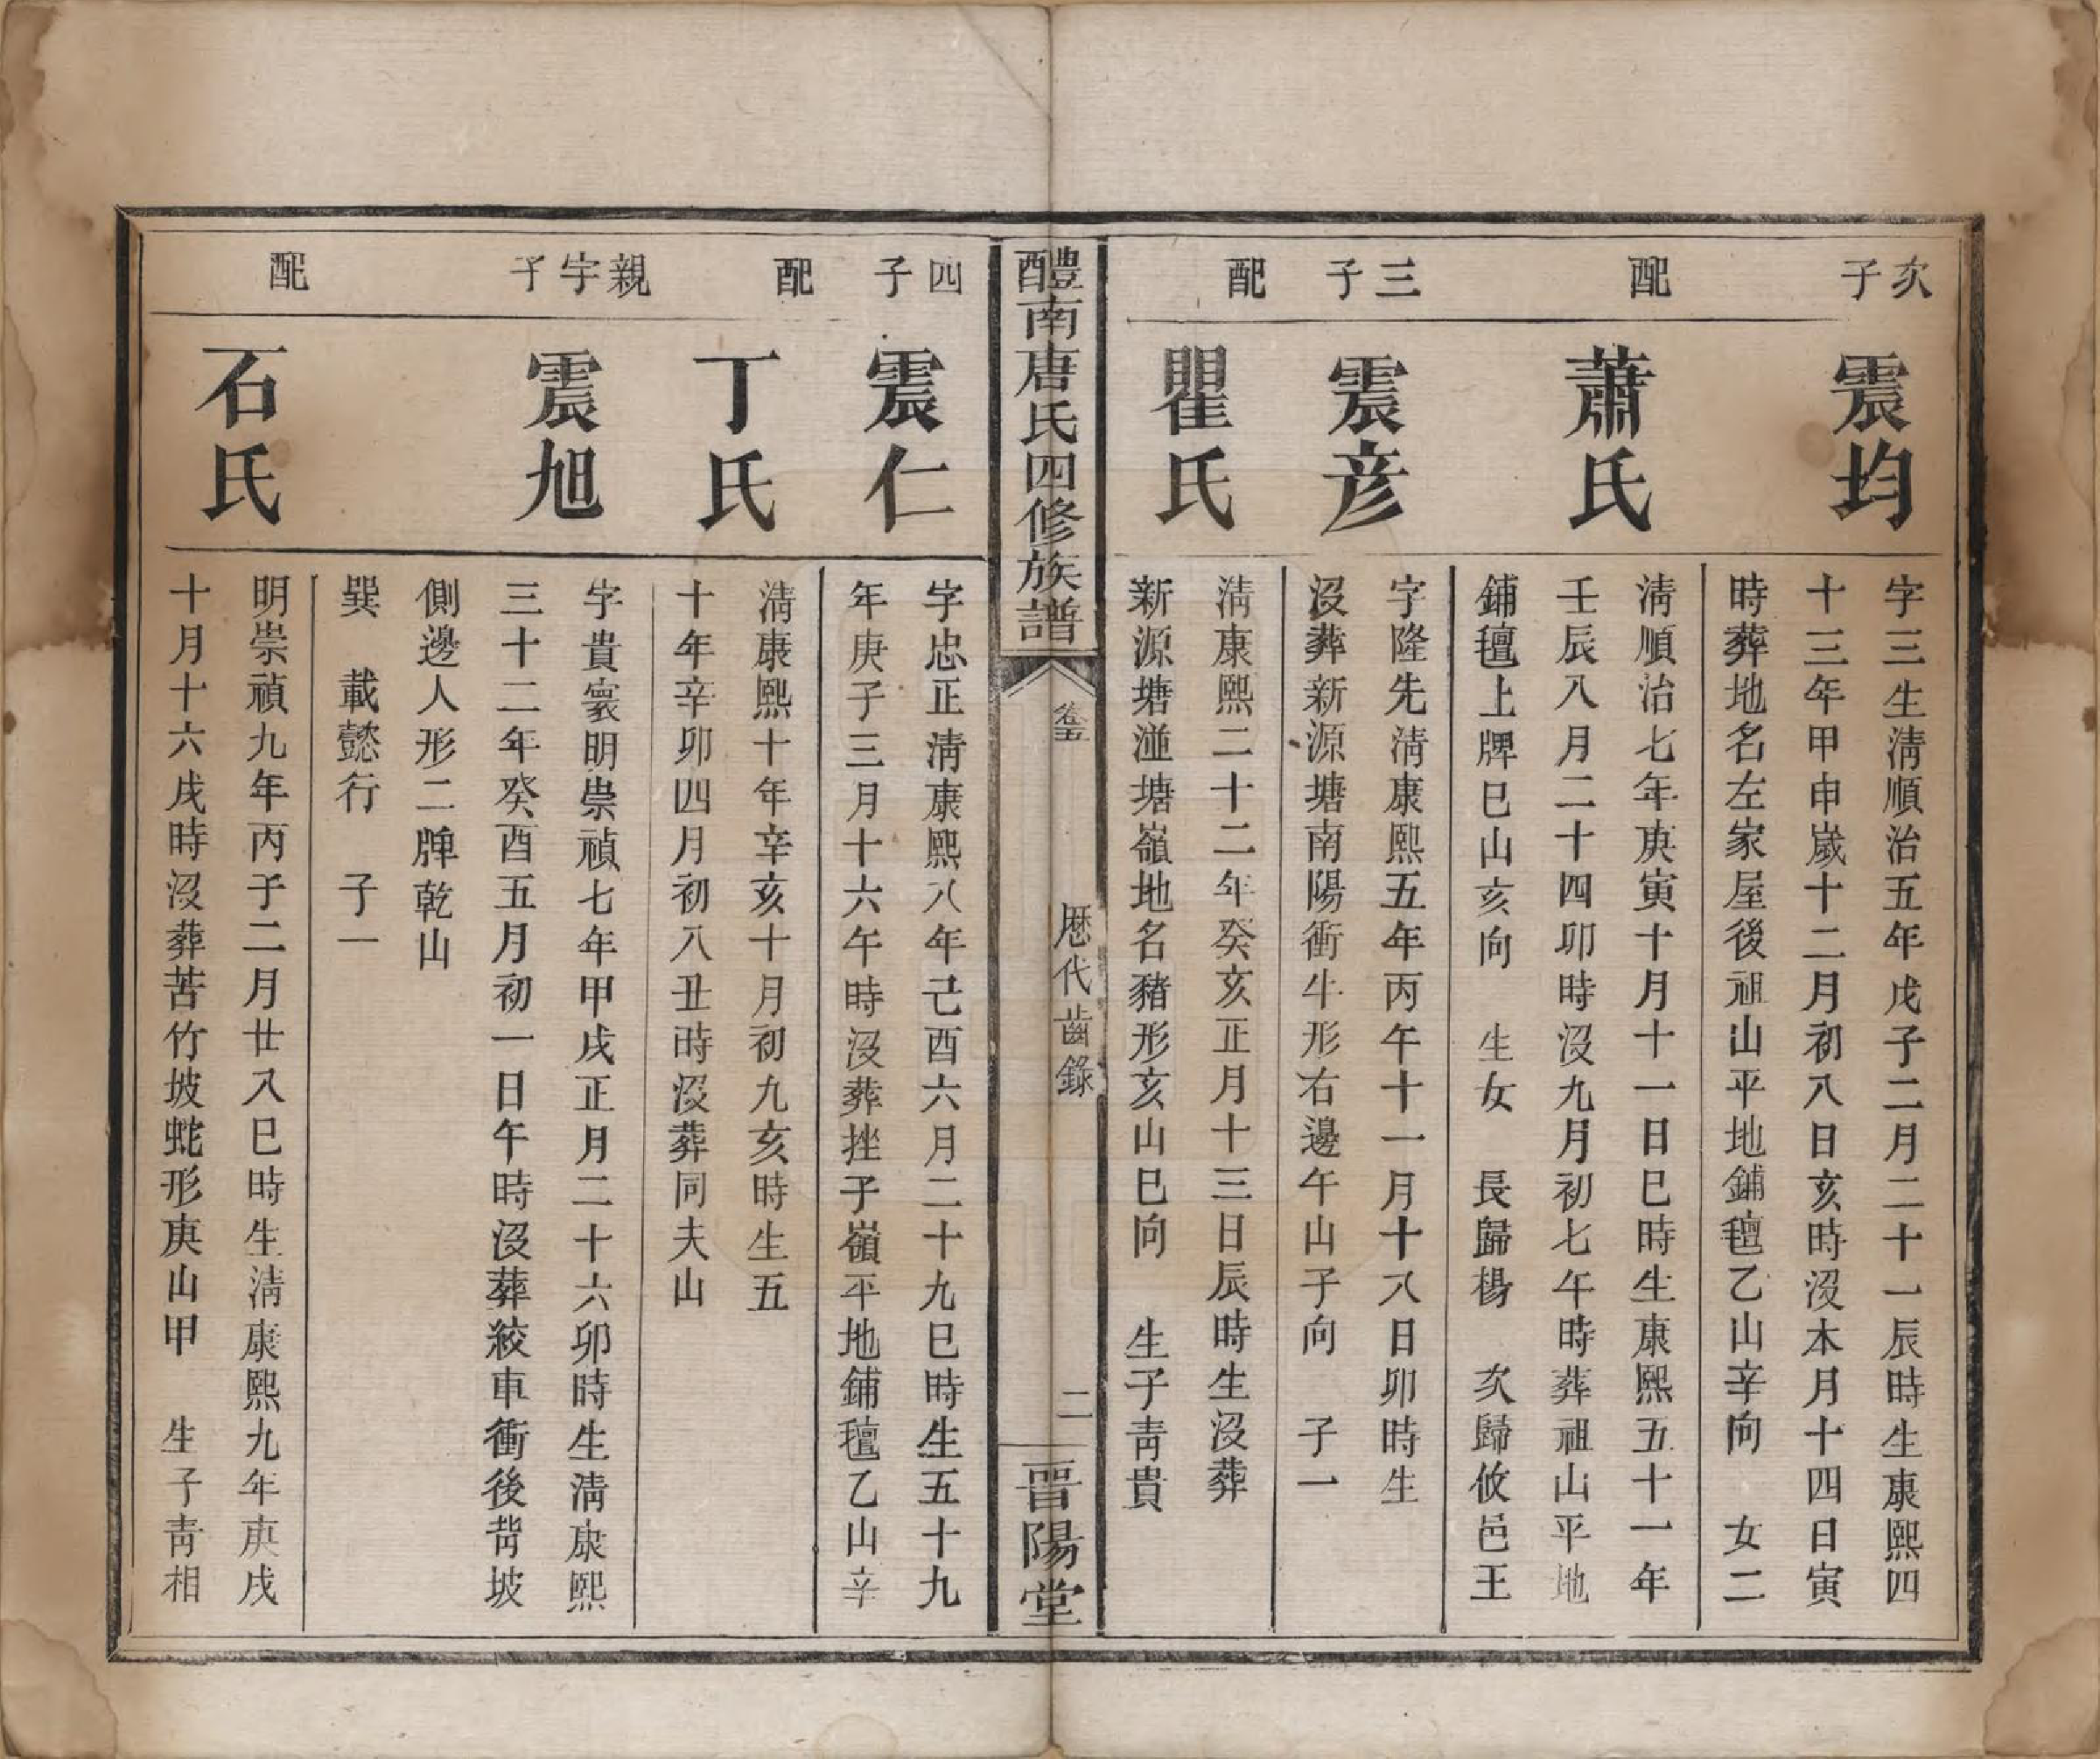 次子
震均
字三生淸順治五年戊子二月二十一辰時生康熙四
十三年甲申歲十二月初八日亥時沒本月十四日寅
時葬地名左家屋後祖山平地鋪氊乙山辛向　女二
配
蕭氏
淸順治七年庚寅十月十一日巳時生康熙五十一年
壬辰八月二十四卯時沒九月初七午時葬祖山平地
鋪氊上牌巳山亥向　生女　長歸楊　次歸攸邑王
三子
震彥
字隆先淸康熙五年丙午十一月十八日卯時生
沒葬新源塘南陽衝牛形右邊午山子向　子一
配
瞿氏
淸康熙二十二年癸亥正月十三日辰時生沒葬
新源塘湴塘嶺地名豬形亥山巳向　生子靑貴
醴南唐氏四修族譜
卷五
歷代齒錄
二
晉陽堂
四子
震仁
字忠正淸康熙八年己酉六月二十九巳時生五十九
年庚子三月十六午時沒葬挫子嶺平地鋪氊乙山辛
配
丁氏
淸康熙十年辛亥十月初九亥時生五
十年辛卯四月初八丑時沒葬同夫山
親宇子
震旭
字貴寰明崇禎七年甲戌正月二十六卯時生淸康熙
三十二年癸酉五月初一日午時沒葬絞車衝後背坡
側邊人形二牌乾山
巽　載懿行　子一
配
石氏
明崇禎九年丙子二月廿八巳時生淸康熙九年庚戌
十月十六戌時沒葬苦竹坡蛇形庚山甲　生子靑相